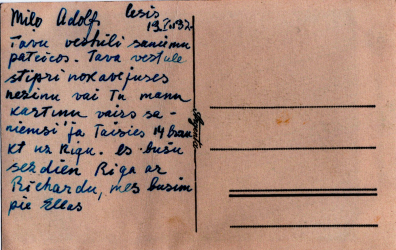 Miļo Adolf Cesis
19.I.32.
Tavu vestuli saņemu
pateicos. Tava vestule
stipri nokavejuses
nezinu vai Tu manu
kartiņu vairs sa-
ņemsi ja Taisies 14 brau
kt uz Rigu. es bušu
sezdien Riga ar
Richardu, mes busim
pie Ellas